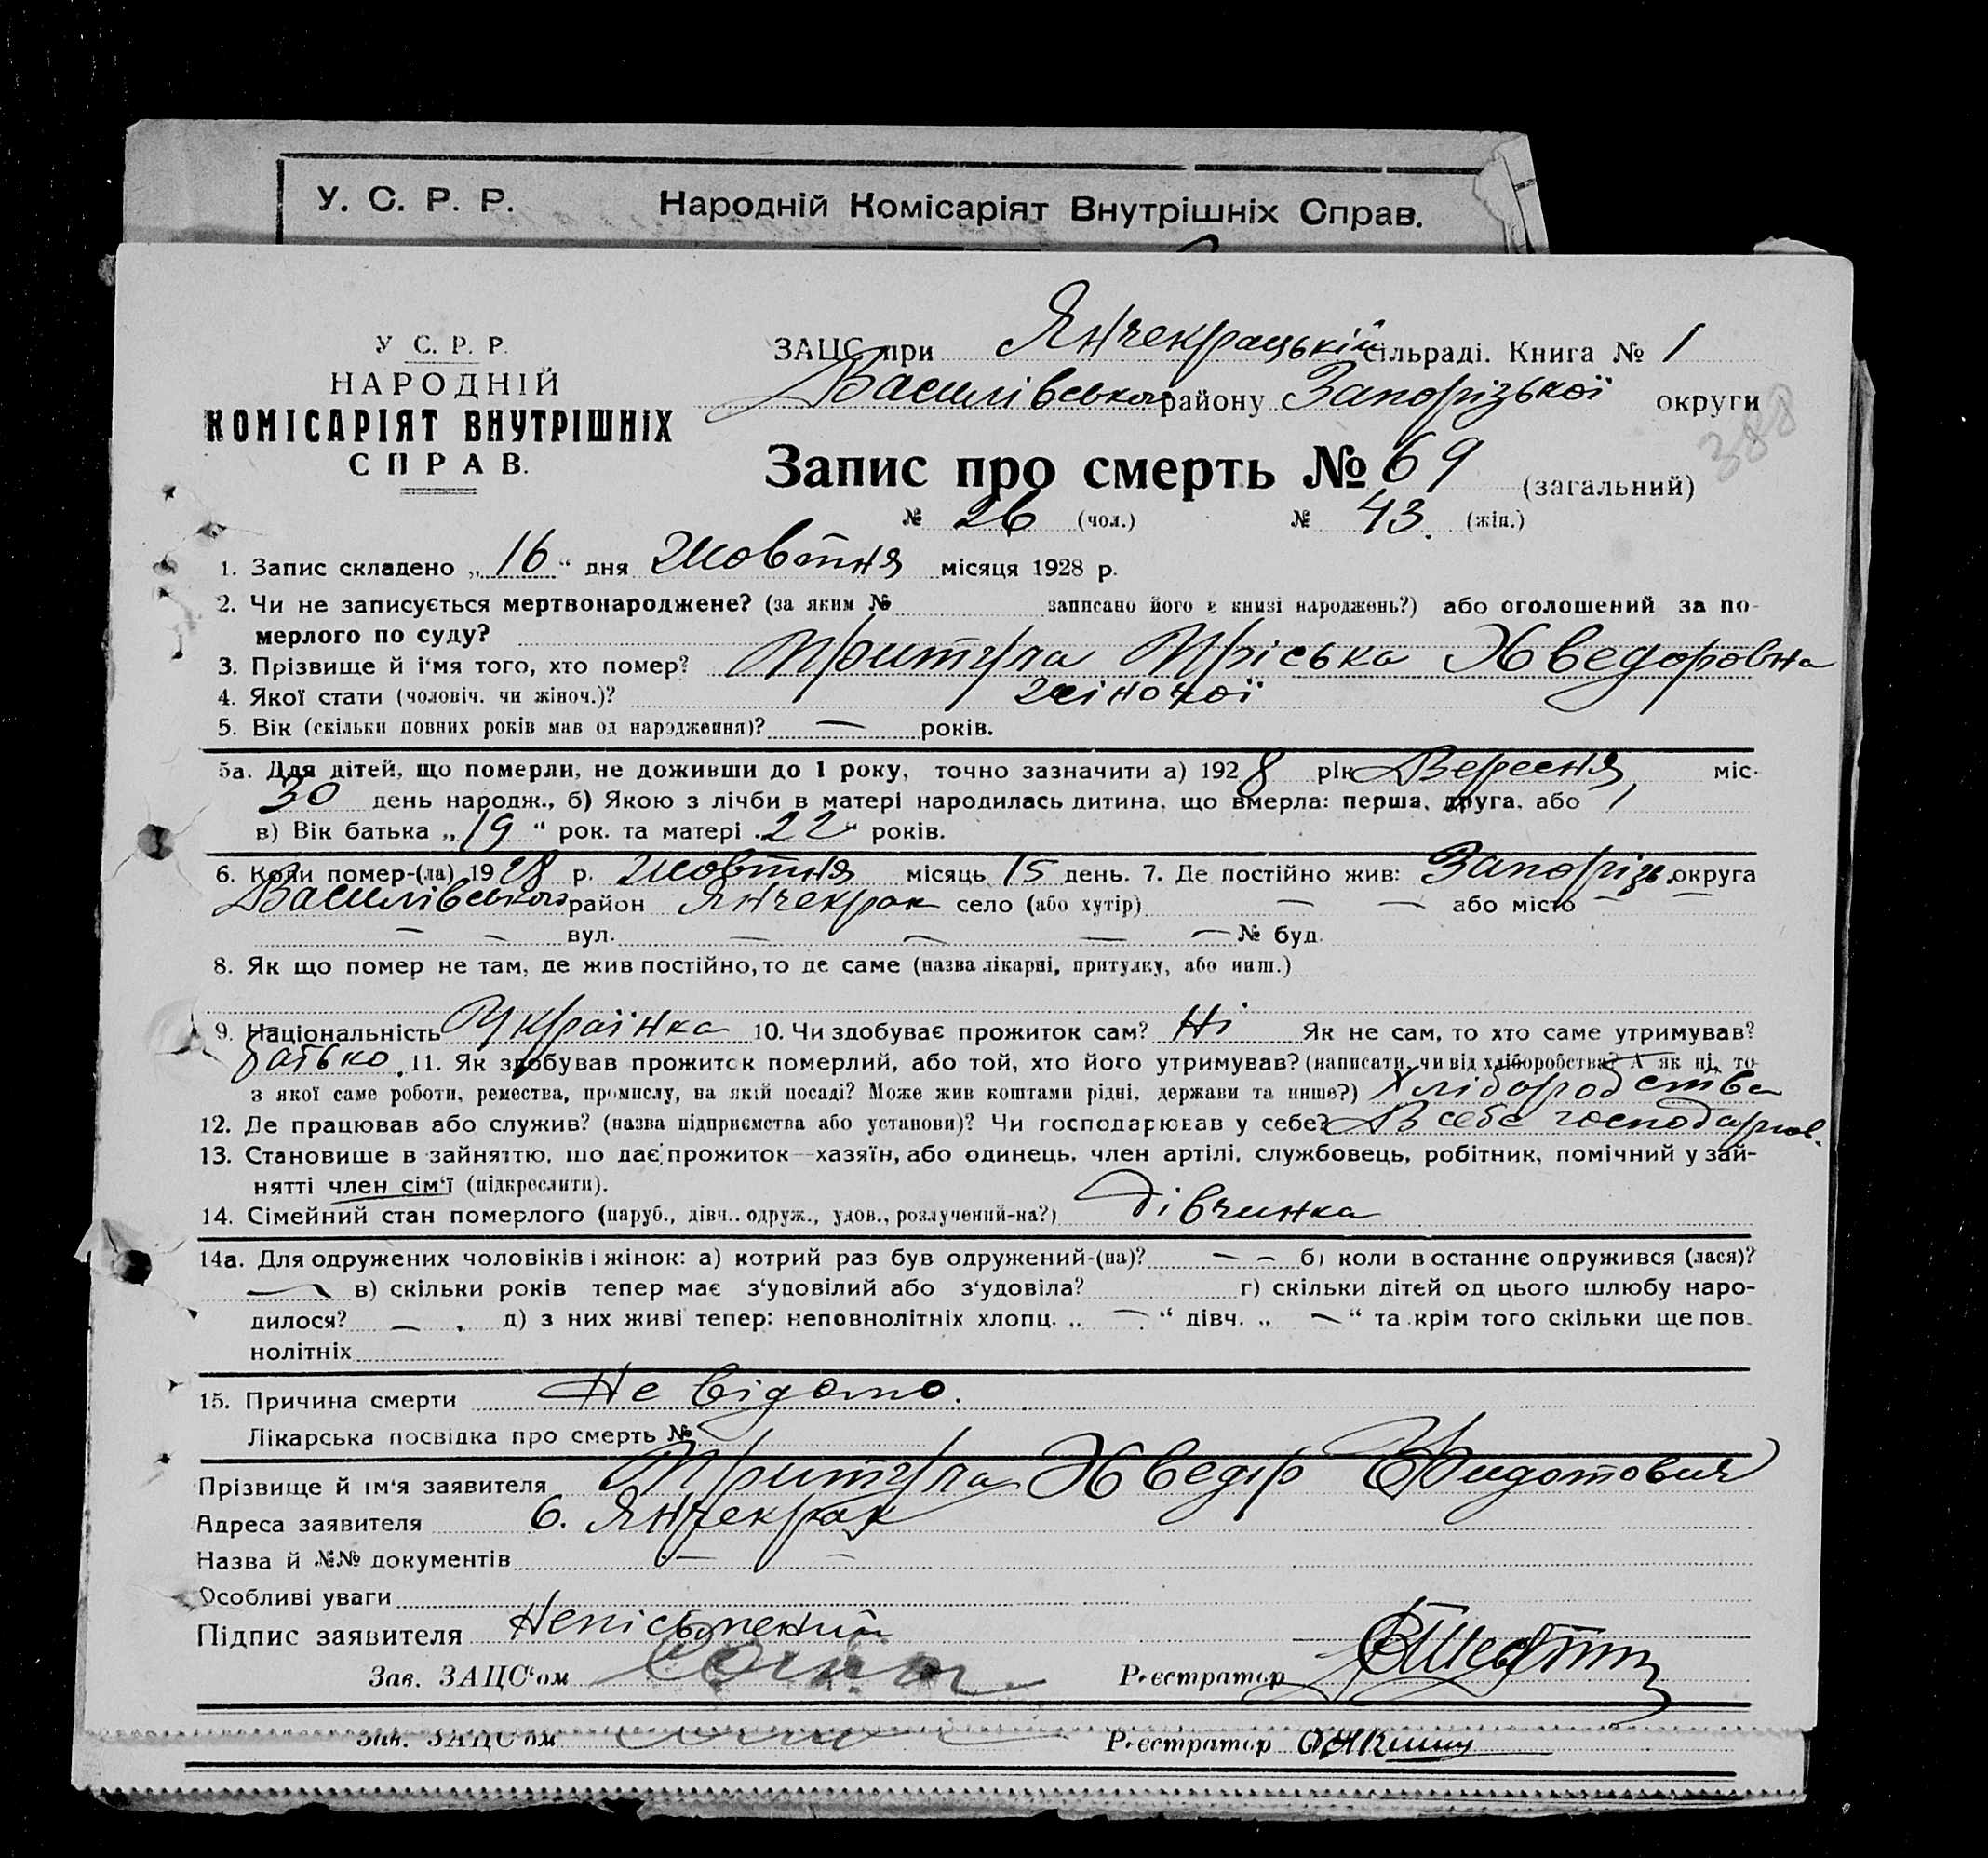 У. С. Р. Р. Народній Комісаріят Внутрішніх Справ.
У С. Р. Р.
НАРОДНІЙ
КОМІСАРІЯТ ВНУТРІШНІХ
СПРАВ.
ЗАЦС при Янчекрацькій сільраді. Книга № 1
Василівського району Запорізької округи
388
Запис про смерть № 69 (загальний)
№ 26 (чол.) № 43. (жін.)
1. Запис складено „ 16 “ дня Жовтня місяця 1928 р.
2. Чи не записується мертвонароджене? (за яким № записано його в книзі народжень?) або оголошений за по-
мерлого по суду?
3. Прізвище й і‘мя того, хто помер? Притула Пріська Хведоровна
4. Якої стати (чоловіч. чи жіноч.)? жіночої
5. Вік (скільки повних років мав од народження)? — років.
5а. Для дітей, що померли, не доживши до 1 року, точно зазначити а) 1928 рік Вересня міс.
30 день народж., б) Якою з лічби в матері народилась дитина, що вмерла: перша, друга, або 1
в) Вік батька „ 19 “ рок. та матері „ 22 “ років.
6. Коли помер-(ла) 1928 р. Жовтня місяць 15 день. 7. Де постійно жив: Запоріз. округа
Василівського район Янчекрак село (або хутір) — — або місто — —
— — вул. — — — — № буд.
8. Як що помер не там, де жив постійно, то де саме (назва лікарні, притулку, або инш.)
9. Національність Українка 10. Чи здобуває прожиток сам? Ні Як не сам, то хто саме утримував?
батько. 11. Як здобував прожиток померлий, або той, хто його утримував? (написати, чи від хліборобства? А як ні, то
з якої саме роботи, ремества, промислу, на якій посаді? Може жив коштами рідні, держави та инше?) Хліборобства
12. Де працював або служив? (назва підприємства або установи)? Чи господарював у себе? В себе господарюв.
13. Становище в зайняттю, що дає прожиток—хазяїн, або одинець, член артілі, службовець, робітник, помічний у зай-
нятті член сім‘ї (підкреслити).
14. Сімейний стан померлого (паруб., дівч., одруж., удов., розлучений-на?) дівчинка
14а. Для одружених чоловіків і жінок: а) котрий раз був одружений-(на)? — — б) коли в останнє одружився (лася)?
— в) скільки років тепер має з‘удовілий або з‘удовіла? г) скільки дітей од цього шлюбу наро-
дилося? — . д) з них живі тепер: неповнолітніх хлопц. „ — “ дівч. „ — “ та крім того скільки ще пов-
нолітніх
15. Причина смерти Не відомо.
Лікарська посвідка про смерть №
Прізвище й ім‘я заявителя Притула Хведір
Адреса заявителя с. Янчекрак
Назва й №№ документів — —
Особливі уваги
Підпис заявителя Неписьменний
Зав. ЗАЦС‘ом Реєстратор
Зав. ЗАЦС‘ом Реєстратор